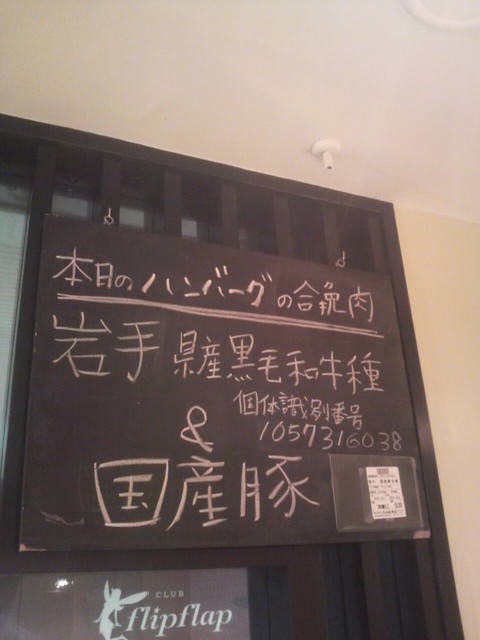 本日のハンバーグの合挽肉
岩手県産黒毛和牛種
個体識別番号
1057316038
&
国産豚
CLUB
flipflap